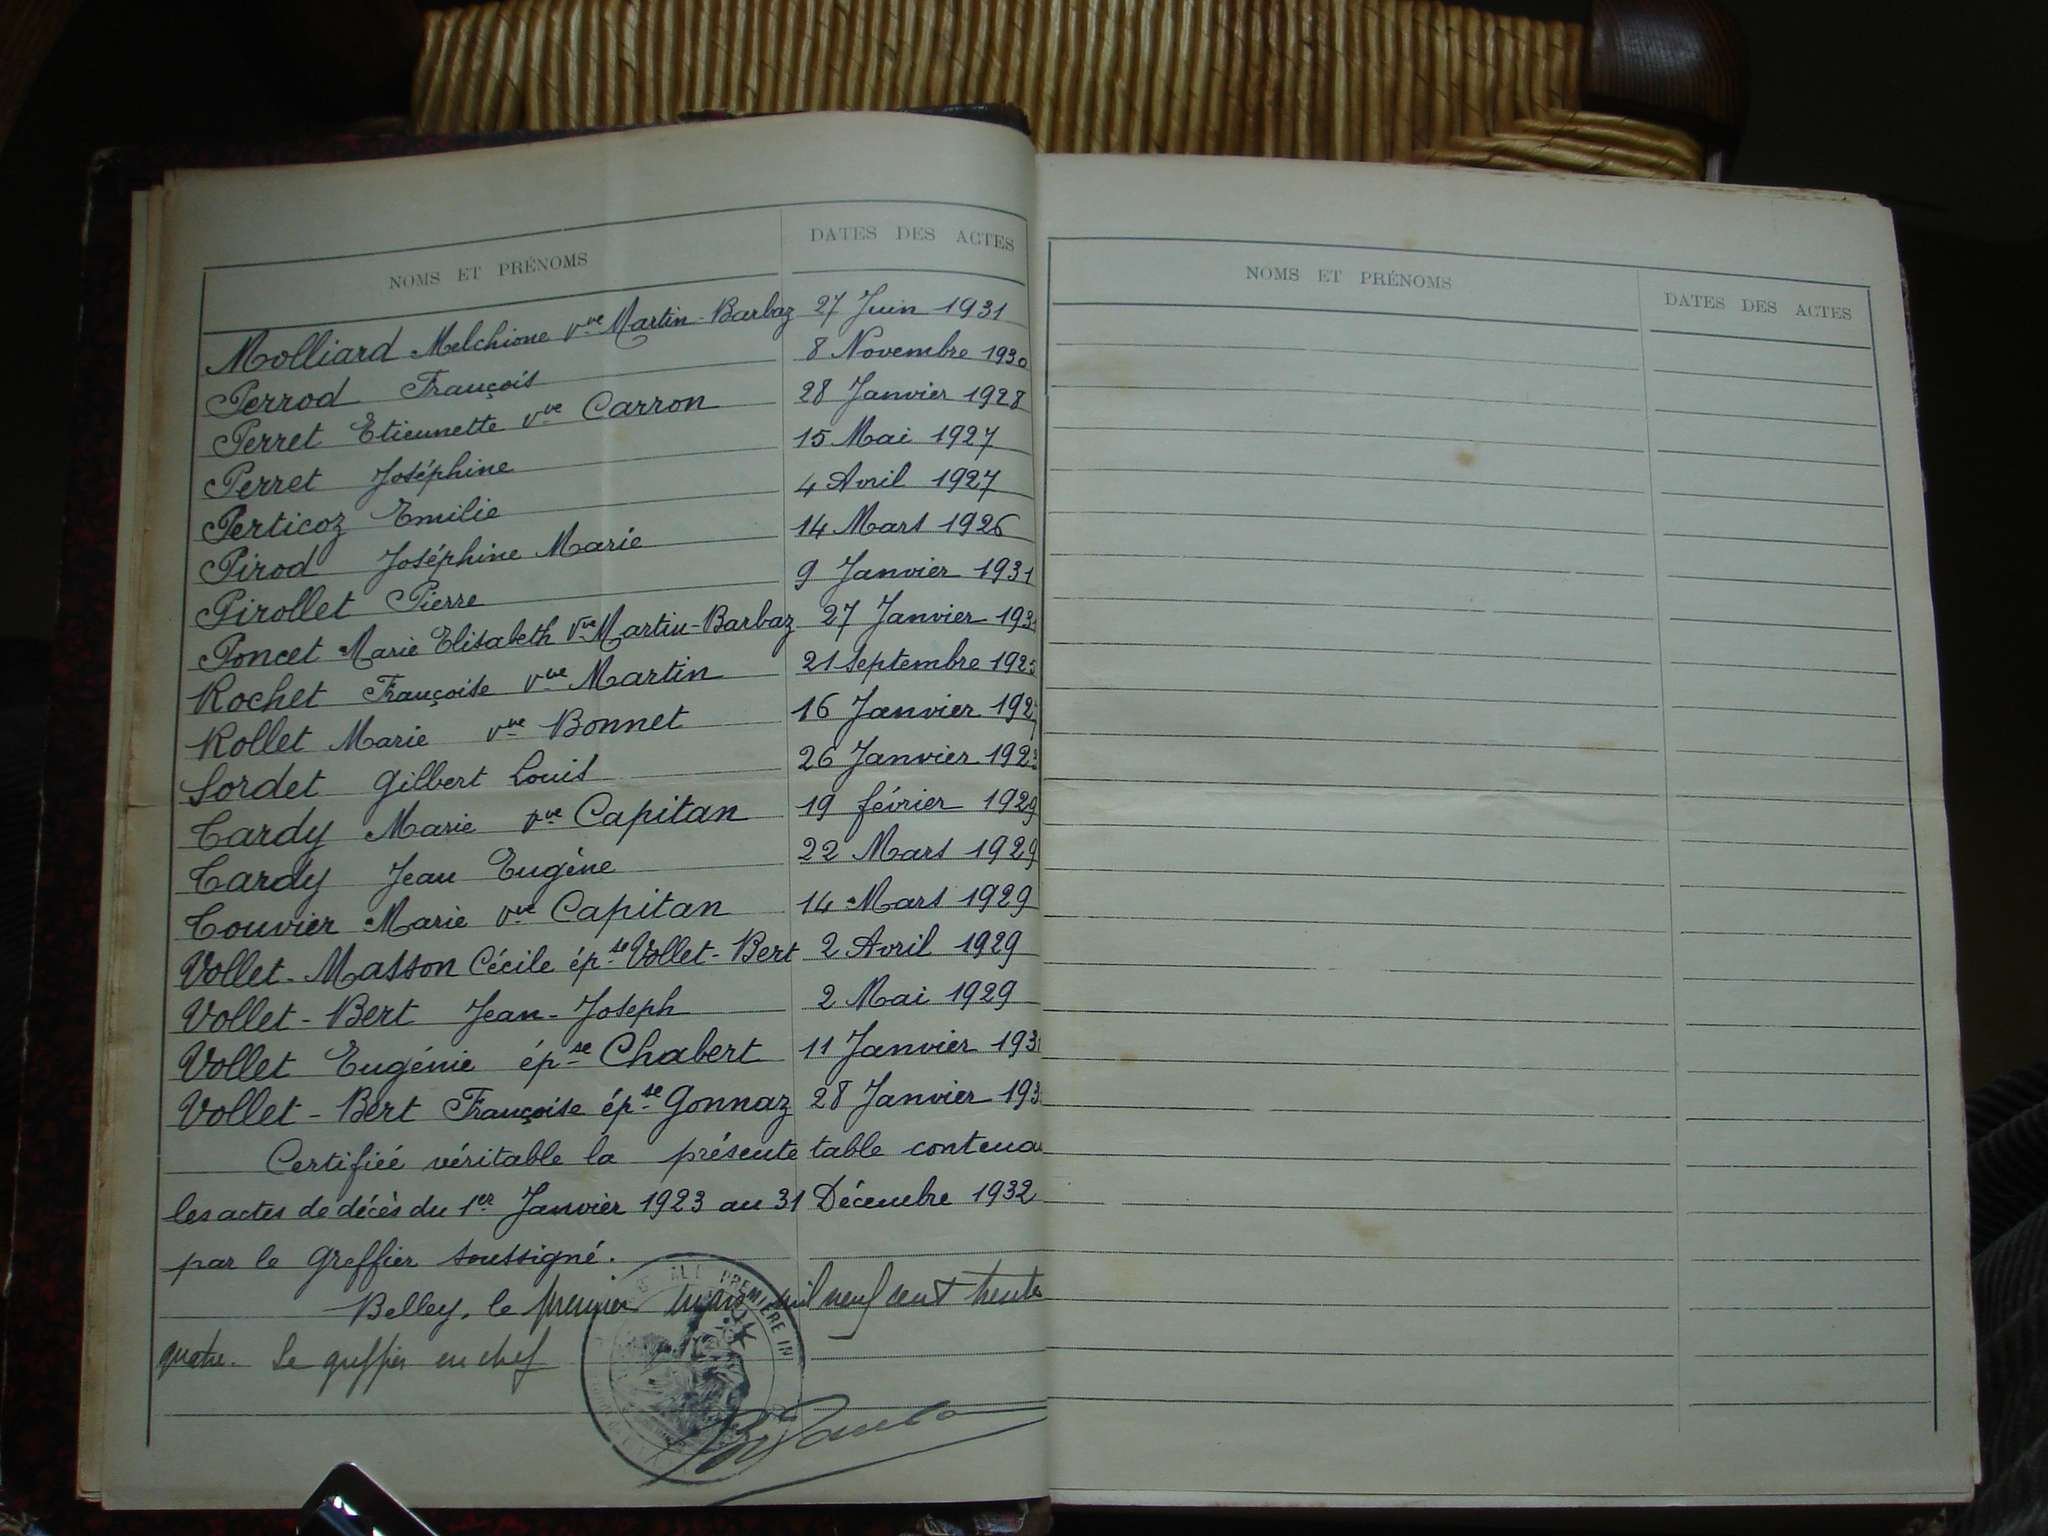 NOMS ET PRÉNOMS DATES DES ACTES
Molliard Melchione vve Martin-Barbaz 27 Juin 1931
Perrod François 8 Novembre 1930
Perret Etiennette vve Carron 28 Janvier 1928
Perret Joséphine 15 Mai 1927
Perticoz Emilie 4 Avril 1927
Pirod Joséphine Marie 14 Mars 1926
Pirollet Pierre 9 Janvier 1931
Poncet Marie Elisabeth Vve Martin-Barbaz 27 Janvier
Rochet Françoise vve Martin 21 Septembre
Rollet Marie vve Bonnet 16 Janvier
Sordet Gilbert Louis 26 Janvier 1923
Tardy Marie vve Capitan 19 février 1929
Tardy Jean Eugène 22 Mars 1929
Touvier Marie vve Capitan 14 Mars 1929
Vollet-Masson Cécile épse Vollet-Bert 2 Avril 1929
Vollet-Bert Jean-Joseph 2 Mai 1929
Vollet Eugénie épse Chabert 11 Janvier
Vollet-Bert Françoise épse Gonnaz 28 Janvier
Certifiée véritable la présente table contena
les actes de décès du 1er Janvier 1923 au 31 Décembre 1932
par le greffier soussigné.
Belley, le premier mars mil neuf cent trente
quatre. Le greffier en chef
PREMIÈRE IN
NOMS ET PRÉNOMS DATES DES ACTES